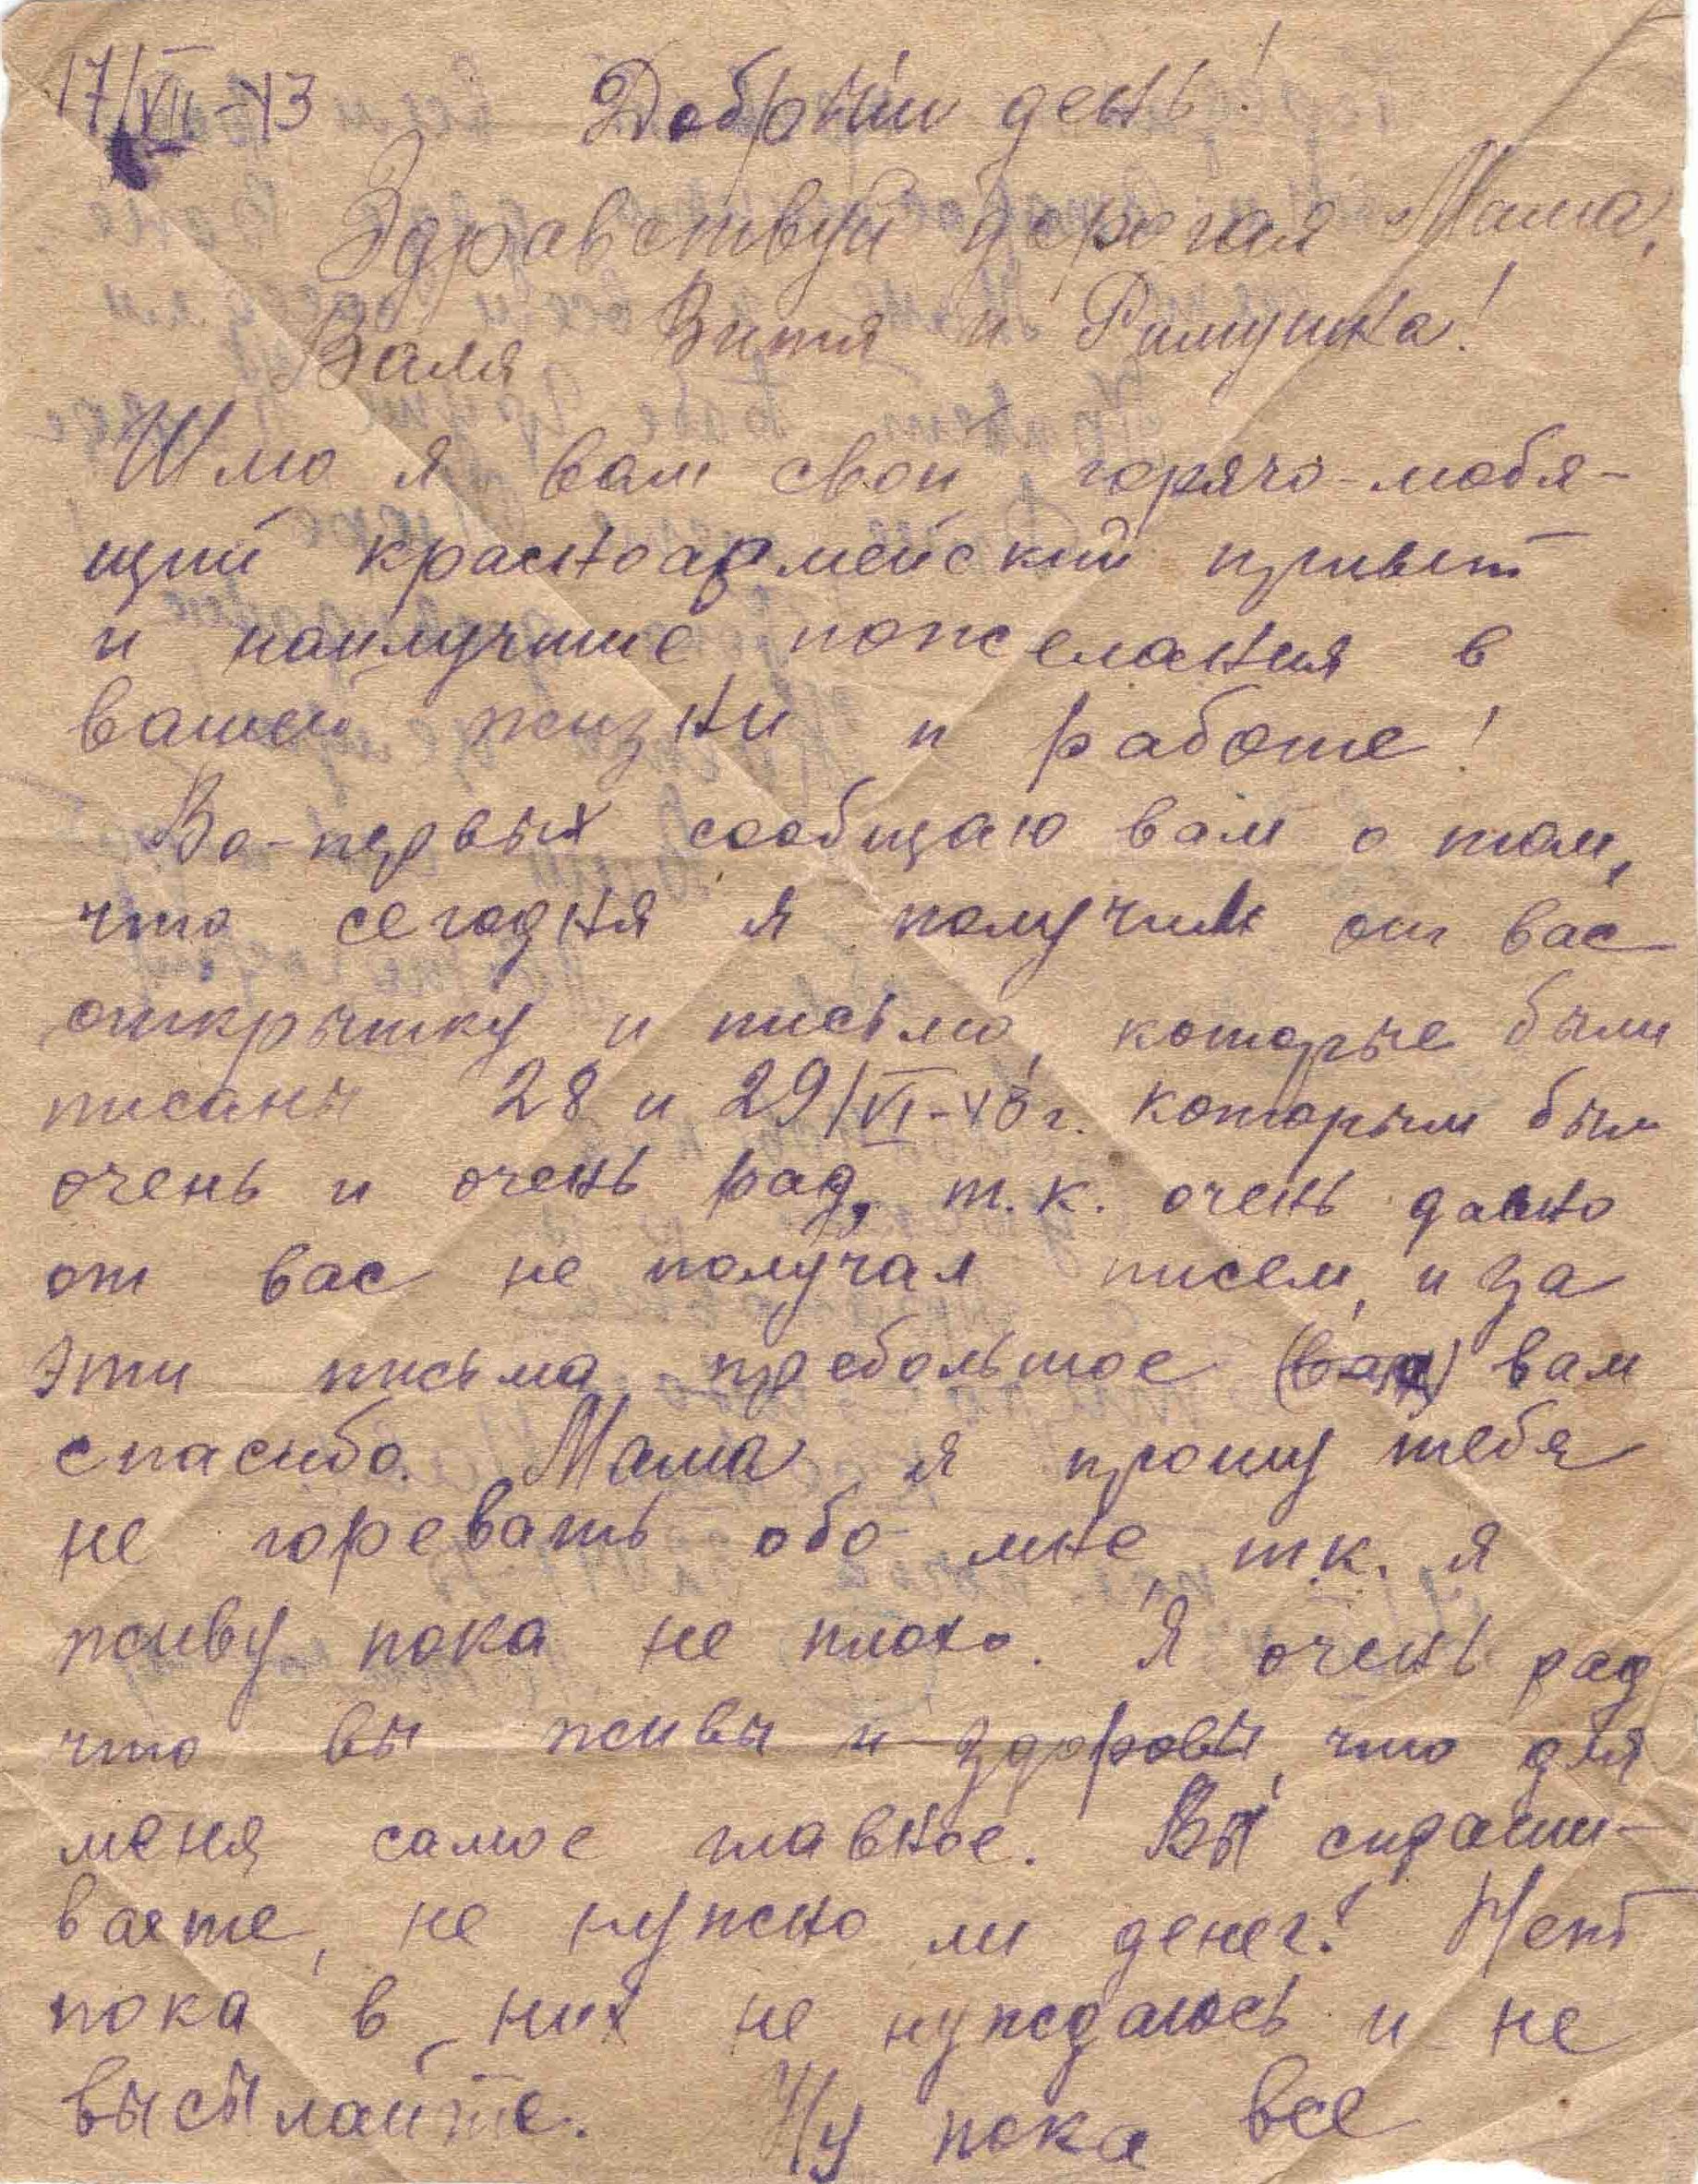 17/VII-43 Добрый день!
Здравствуй дорогая Мама,
Валя Витя и Римушка!
Шлю я вам свой горячо-любя-
щий красноармейский привет
и наилучшие пожелания в
вашей жизни и работе!
Во-первых сообщаю вам о том,
что сегодня я получил от вас
открытку и письмо, которые были
писаны 28 и 29/VI-43г. которым был
очень и очень рад, т.к. очень давно
от вас не получал писем, и за
эти письма пребольшое (вам) вам
спасибо. Мама я прошу тебя
не горевать обо мне, т.к. я
живу пока не плохо. Я очень рад
что вы живы и здоровы, что для
меня самое главное. Вы спраши-
ваете, не нужно ли денег? Нет
пока в них не нуждаюсь и не
высылайте. Ну пока все